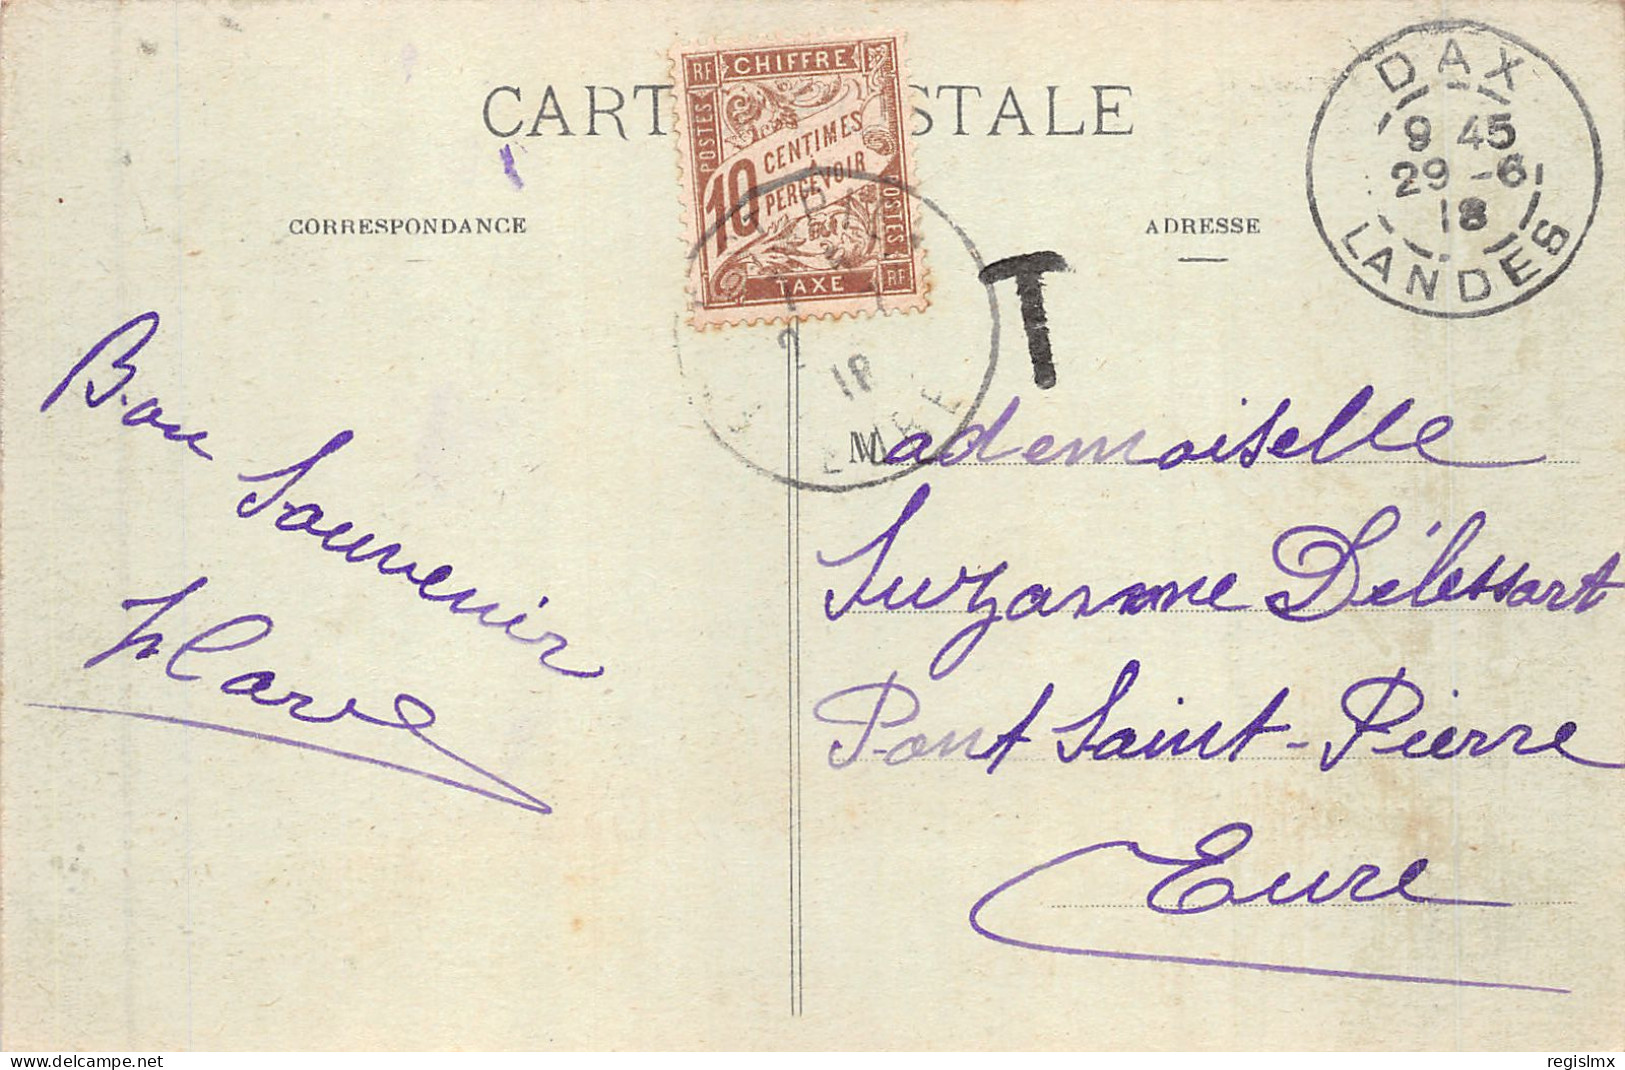 CARTE POSTALE
RF CHIFFRE
POSTES
10 CENTIMES
À
PERCEVOIR
POSTES
TAXE RF
DAX
9 45
29 -6
18
LANDES
CORRESPONDANCE
ADRESSE
T
18
EURE
Bon Souvenir
Mademoiselle
Suzanne Délessart
Pont Saint-Pierre
Eure
delcampe.net
regislmx